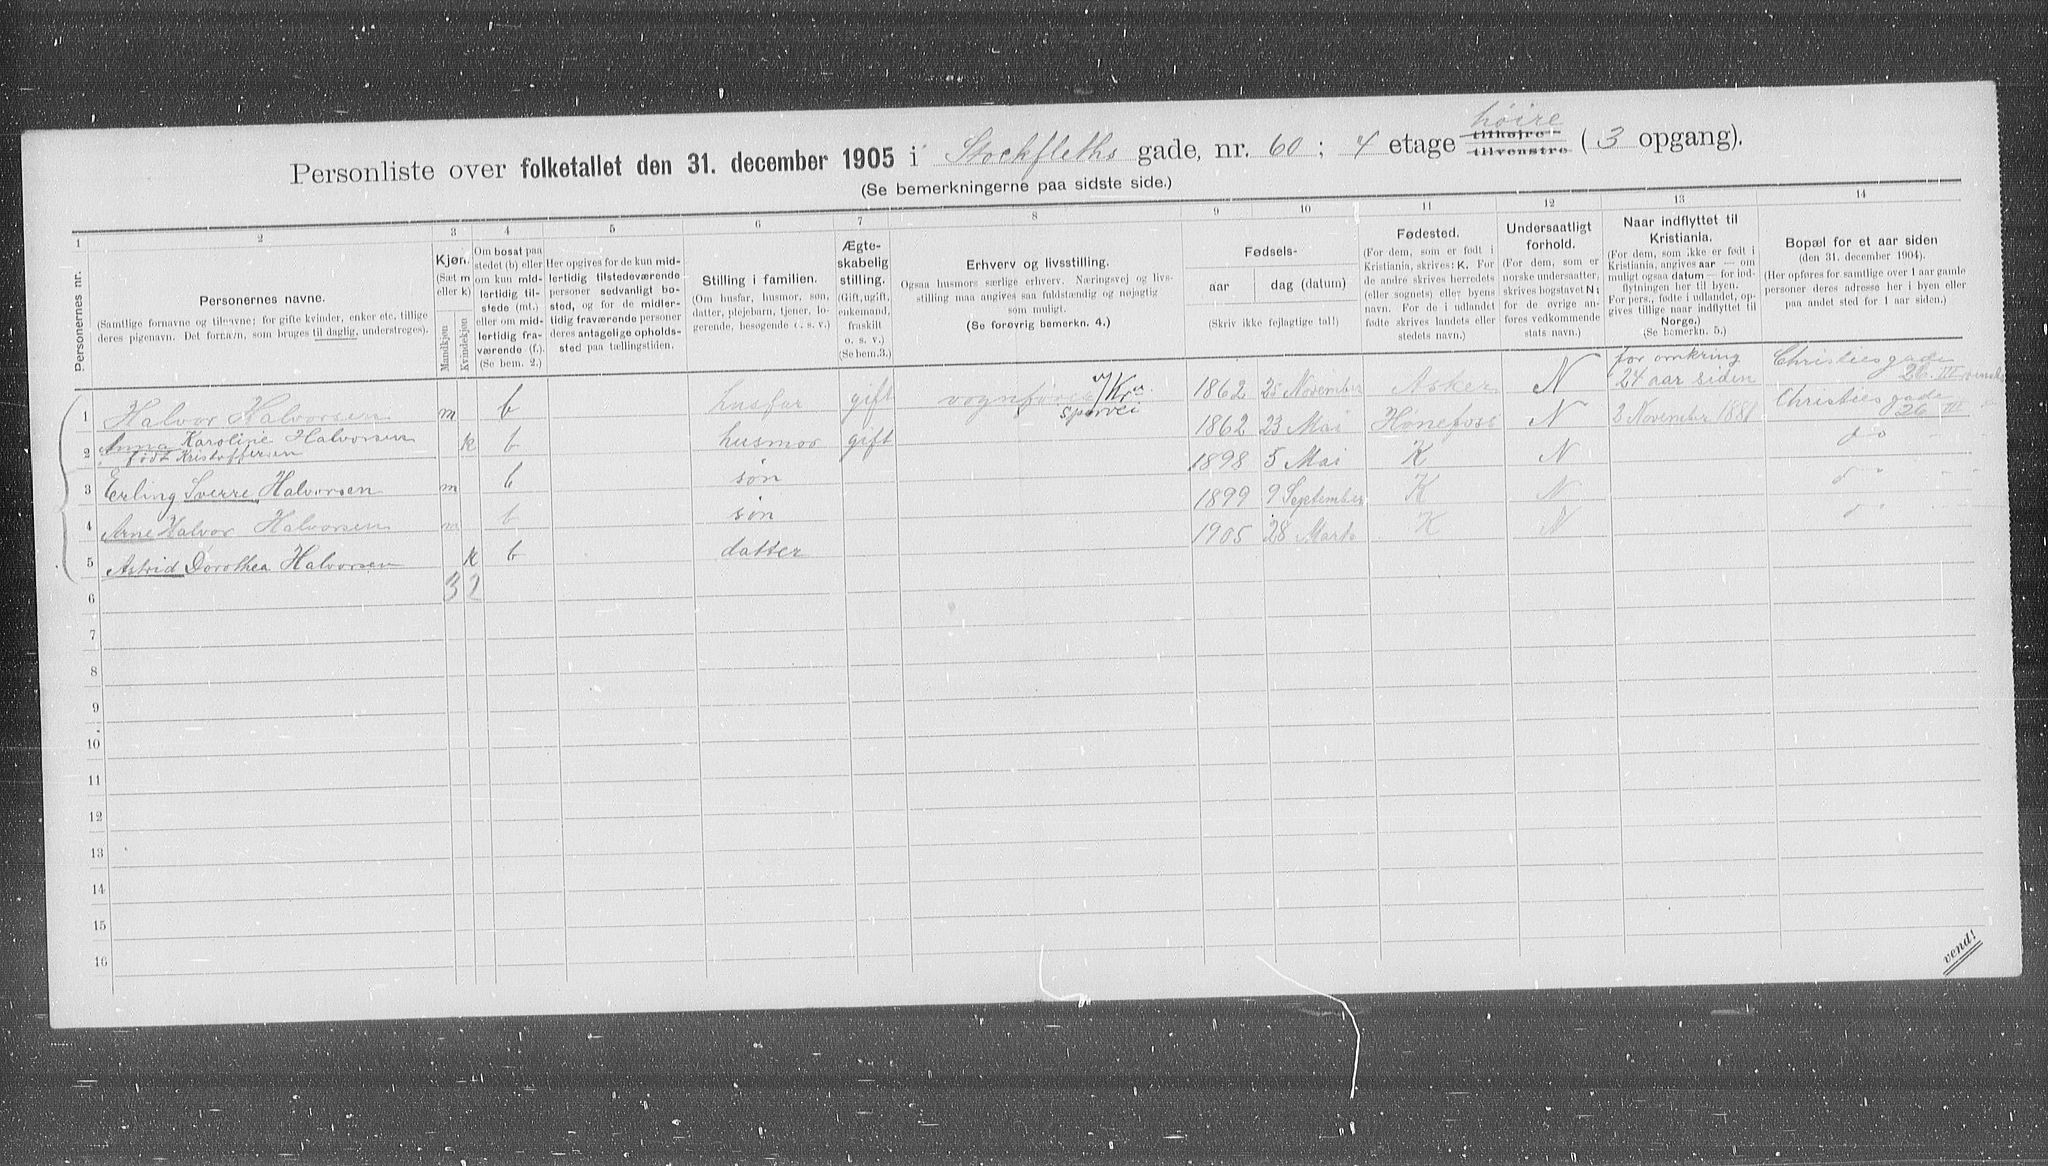 Personliste over folketallet den 31. december 1905 i Stockfleths gade, nr. 60 ; 4 etage høire tilhøire - tilvenstre (3 opgang).
(Se bemerkningerne paa sidste side.)
1 2 3 4 5 6 7 8 9 10 11 12 13 14
Personernes nr.
Personernes navne.
(Samtlige fornavne og tilnavne; for gifte kvinder, enker etc. tillige
deres pigenavn. Det fornavn, som bruges til daglig, understreges).
Kjøn.
(Sæt m
eller k)
Mandkjøn
Kvindekjøn
Om bosat paa
stedet (b) eller
om kun mid-
lertidig til-
stede (mt.)
eller om mid-
lertidig fra-
værende (f.).
(Se bem. 2.)
Her opgives for de kun mid-
lertidig tilstedeværende
personer sedvanligt bo-
sted, og for de midler-
tidig fraværende personer
deres antagelige opholds-
sted paa tællingstiden.
Stilling i familien.
(Om husfar, husmor, søn,
datter, plejebarn, tjener, lo-
gerende, besøgende o. s. v.)
Ægte-
skabelig
stilling.
(Gift, ugift,
enkemand,
fraskilt
o. s. v.)
(Se bem.3.)
Erhverv og livsstilling.
Ogsaa husmors særlige erhverv. Næringsvej og livs-
stilling maa angives saa fuldstændig og nøjagtig
som muligt.
(Se forøvrig bemerkn. 4.)
Fødsels-
aar
dag (datum)
(Skriv ikke fejlagtige tal!)
Fødested.
(For dem, som er født i
Kristiania, skrives: K. For
de andre skrives herredets
(eller sognets) eller byens
navn. For de i udlandet
fødte skrives landets eller
stedets navn.)
Undersaatligt
forhold.
(For dem, som er
norske undersaatter,
skrives bogstavet N;
for de øvrige an-
føres vedkommende
stats navn.)
Naar indflyttet til
Kristiania.
(For dem, som ikke er født i
Kristiania, angives aar — om
muligt ogsaa datum — for ind-
flytningen her til byen.
For pers., fødte i udlandet, op-
gives tillige naar indflyttet til
Norge.)
(Se bemerkn. 5.)
Bopæl for et aar siden
(den 31. december 1904).
(Her opføres for samtlige over 1 aar gamle
personer deres adresse her i byen eller
paa andet sted for 1 aar siden.)
1 Halvor Halvorsen m b husfar gift vognfører v/Kra. sporvei 1862 25 November Asker N for omkring 24 aar siden Christies gade 26 III
2 Anna Karoline Halvorsen født Kristoffersen k b husmor gift 1862 23 Mai Hønefoss N 3 November 1881 Christies gade 26 III
3 Erling Sverre Halvorsen m b søn 1898 5 Mai K N do
4 Arne Halvor Halvorsen m b søn 1899 9 September K N do
5 Astrid Dorothea Halvorsen k b datter 1905 28 Marts K N do
6 3 2
7
8
9
10
11
12
13
14
15
16
vend!